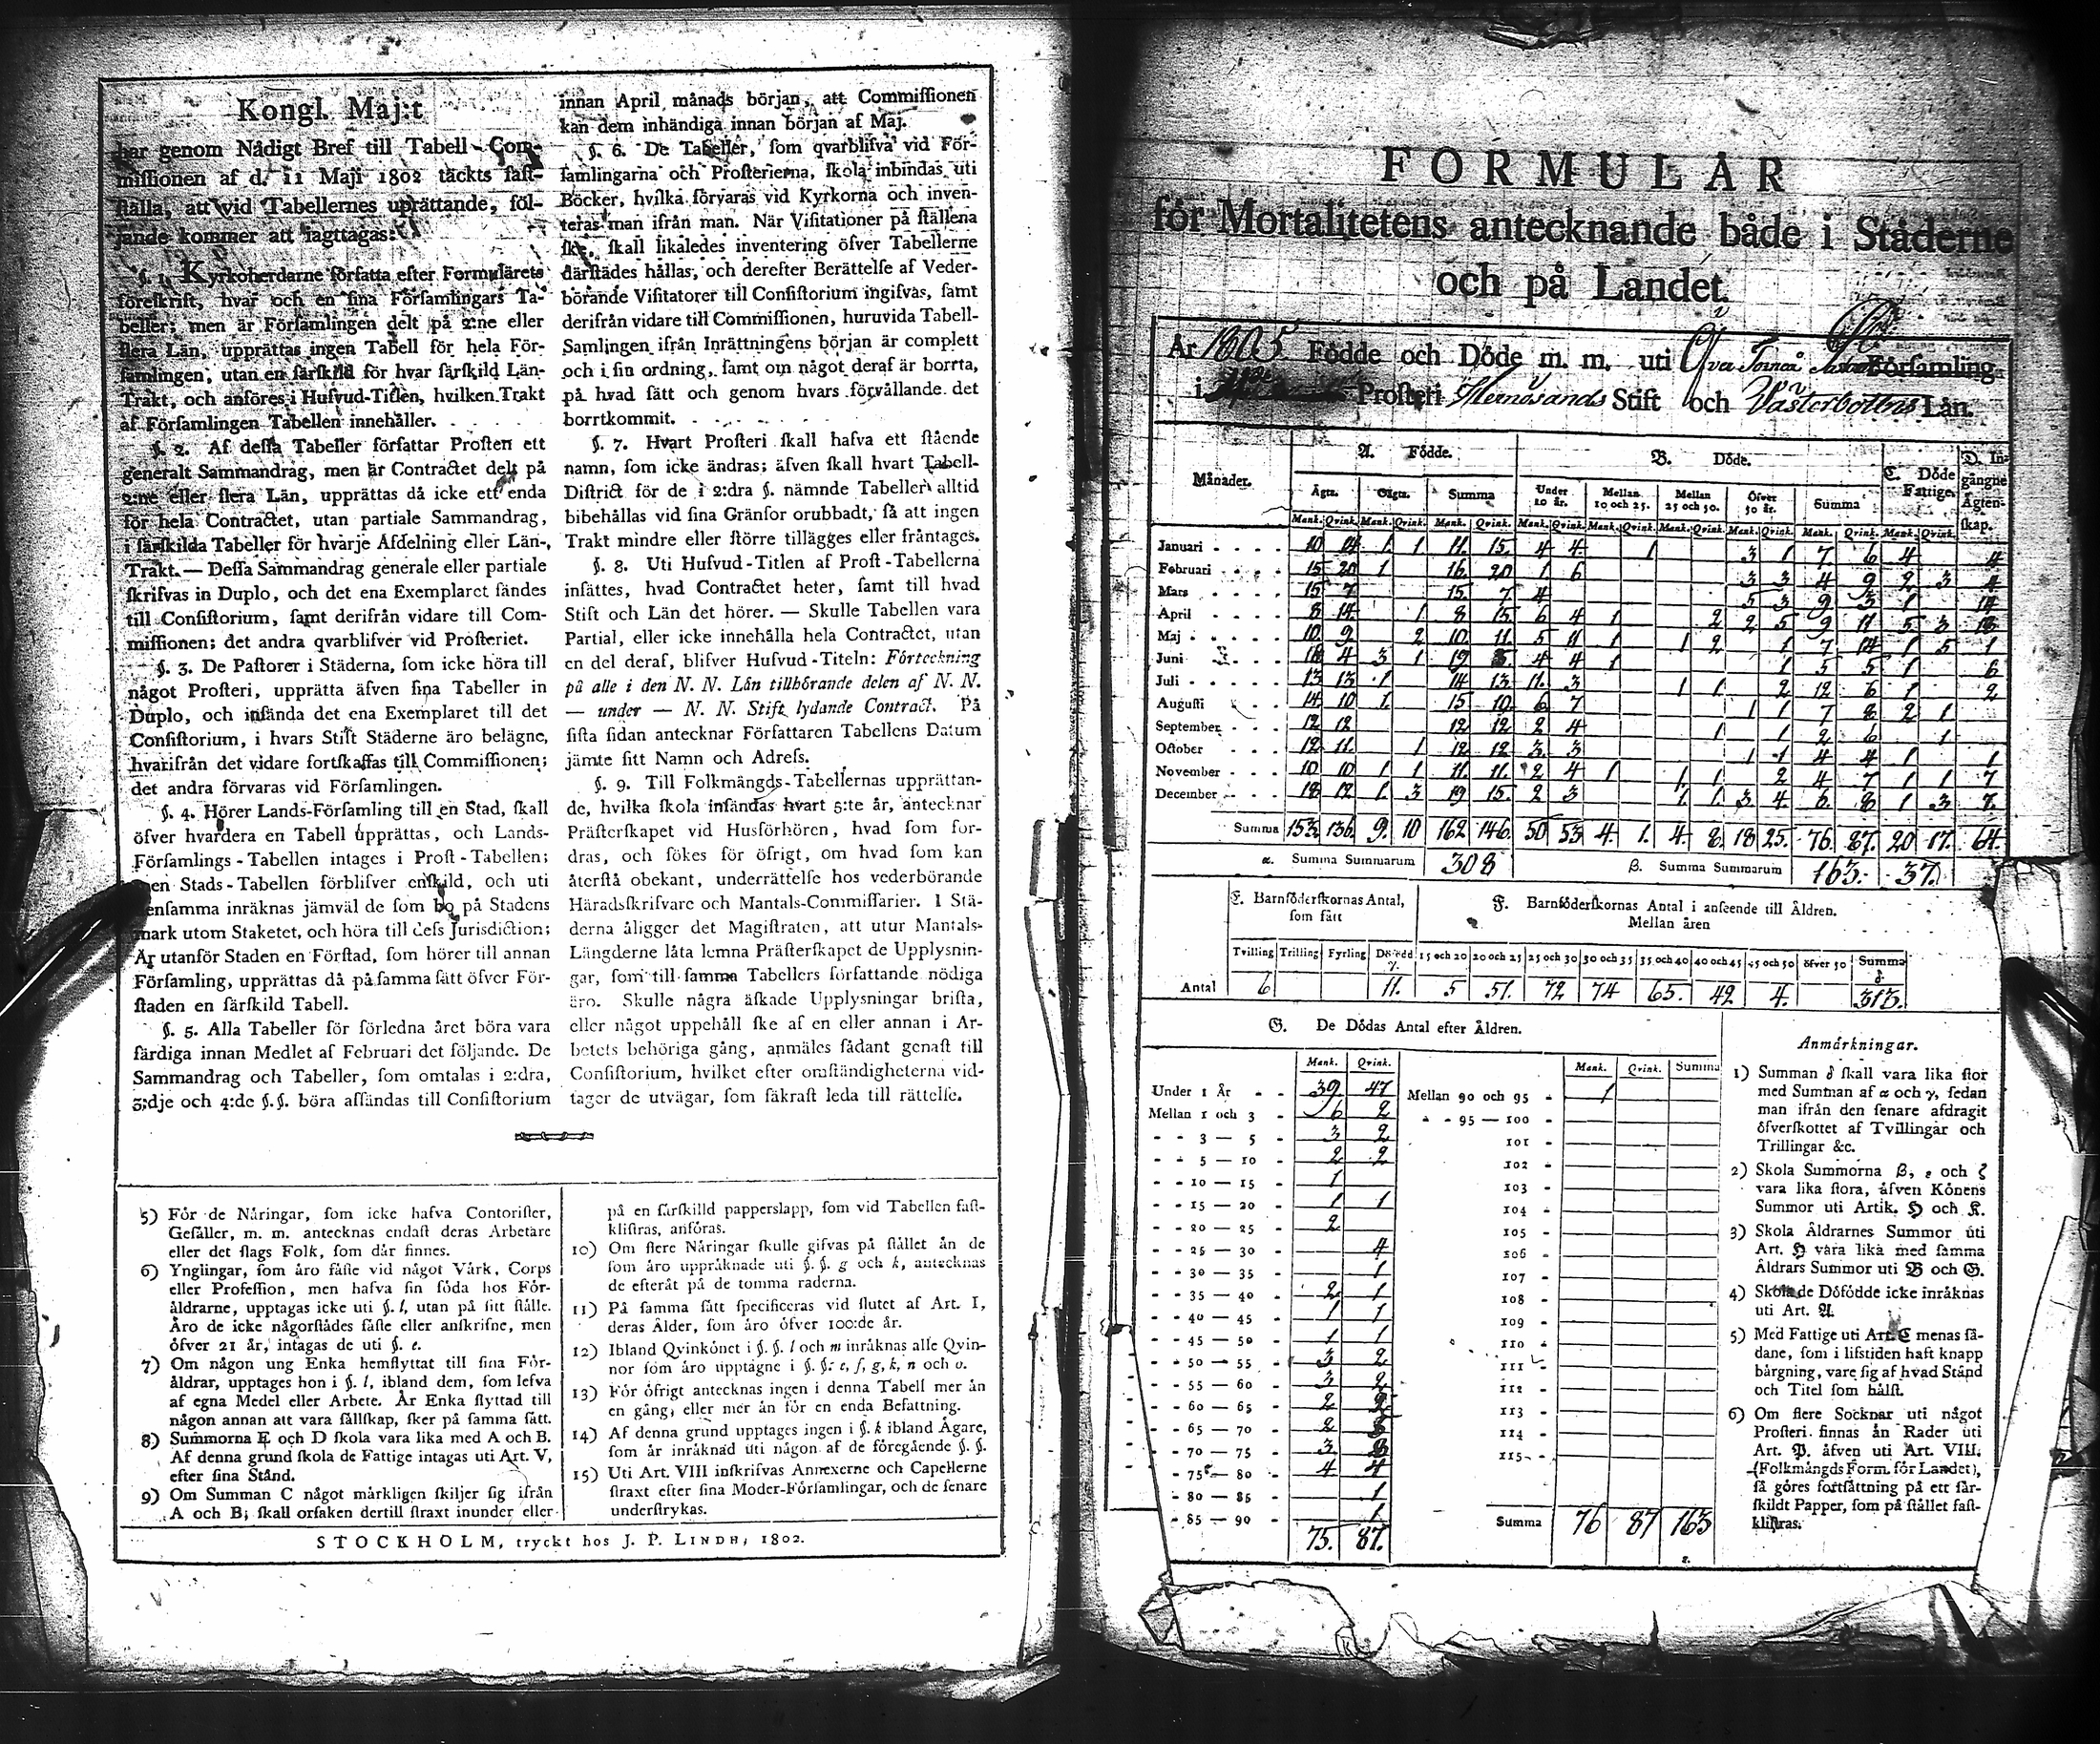 Kongl. Maj:t
har genom Nådigt Bref till Tabell-Com-
missionen af d. 11 Maji 1802 täckts fast-
ställa, att vid Tabellernes uprättande, föl-
jande kommer att iagttagas:
§. 1. Kyrkoherdarne författa efter Formulärets
föreskrift, hvar och en sina Församlingars Ta-
beller; men är Församlingen delt på 2:ne eller
flera Län, upprättas ingen Tabell för hela För-
samlingen, utan en särskild för hvar särskild Län-
Trakt, och anföres i Hufvud-Titlen, hvilken Trakt
af Församlingen Tabellen innehåller.
§. 2. Af dessa Tabeller författar Prosten ett
generalt Sammandrag, men är Contractet delt på
2:ne eller flera Län, upprättas då icke ett enda
för hela Contractet, utan partiale Sammandrag,
i särskilda Tabeller för hvarje Afdelning eller Län-
Trakt. — Dessa Sammandrag generale eller partiale
skrifvas in Duplo, och det ena Exemplaret sändes
till Consistorium, samt derifrån vidare till Com-
missionen; det andra qvarblifver vid Prosteriet.
§. 3. De Pastorer i Städerna, som icke höra till
något Prosteri, upprätta äfven sina Tabeller in
Duplo, och insända det ena Exemplaret till det
Consistorium, i hvars Stift Städerne äro belägne,
hvarifrån det vidare fortskaffas till Commissionen;
det andra förvaras vid Församlingen.
§. 4. Hörer Lands-Församling till en Stad, skall
öfver hvardera en Tabell upprättas, och Lands-
Församlings-Tabellen intages i Prost-Tabellen;
men Stads-Tabellen förblifver enskild, och uti
densamma inräknas jämväl de som bo på Stadens
mark utom Staketet, och höra till dess Jurisdiction;
Är utanför Staden en Förstad, som hörer till annan
Församling, upprättas då på samma sätt öfver För-
staden en särskild Tabell.
§. 5. Alla Tabeller för förledna året böra vara
färdiga innan Medlet af Februari det följande. De
Sammandrag och Tabeller, som omtalas i 2:dra,
3:dje och 4:de §.§. böra afsändas till Consistorium
innan April månads början, att Commissionen
kan dem inhändiga innan början af Maj.
§. 6. De Tabeller, som qvarblifva vid För-
samlingarna och Prosterierna, skola inbindas uti
Böcker, hvilka förvaras vid Kyrkorna och inven-
teras man ifrån man. När Visitationer på ställena
ske, skall likaledes inventering öfver Tabellerne
därstädes hållas, och derefter Berättelse af Veder-
börande Visitatorer till Consistorium ingifvas, samt
derifrån vidare till Commissionen, huruvida Tabell-
Samlingen ifrån Inrättningens början är complett
och i sin ordning, samt om något deraf är borrta,
på hvad sätt och genom hvars förvållande det
borrtkommit.
§. 7. Hvart Prosteri skall hafva ett stående
namn, som icke ändras; äfven skall hvart Tabell-
District för de i 2:dra §. nämnde Tabeller alltid
bibehållas vid sina Gränsor orubbadt, så att ingen
Trakt mindre eller större tillägges eller fråntages.
§. 8. Uti Hufvud-Titlen af Prost-Tabellerna
insättes, hvad Contractet heter, samt till hvad
Stift och Län det hörer. — Skulle Tabellen vara
Partial, eller icke innehålla hela Contractet, utan
en del deraf, blifver Hufvud-Titeln: Förteckning
på alle i den N. N. Län tillhörande delen af N. N.
— under — N. N. Stift lydande Contract. På
sista sidan antecknar Författaren Tabellens Datum
jämte sitt Namn och Adress.
§. 9. Till Folkmängds-Tabellernas upprättan-
de, hvilka skola insändas hvart 5:te år, antecknar
Prästerskapet vid Husförhören, hvad som for-
dras, och sökes för öfrigt, om hvad som kan
återstå obekant, underrättelse hos vederbörande
Häradsskrifvare och Mantals-Commissarier. I Stä-
derna åligger det Magistraten, att utur Mantals-
Längderne låta lemna Prästerskapet de Upplysnin-
gar, som till samma Tabellers författande nödiga
äro. Skulle några äskade Upplysningar brista,
eller något uppehåll ske af en eller annan i Ar-
betets behöriga gång, anmäles sådant genast till
Consistorium, hvilket efter omständigheterna vid-
tager de utvägar, som säkrast leda till rättelse.
5) För de Näringar, som icke hafva Contorister,
Gesäller, m. m. antecknas endast deras Arbetare
eller det slags Folk, som där finnes.
6) Ynglingar, som äro fäste vid något Värk, Corps
eller Profession, men hafva sin föda hos För-
äldrarne, upptagas icke uti §. l, utan på sitt ställe.
Äro de icke någorstädes fäste eller anskrifne, men
öfver 21 år, intagas de uti §. e.
7) Om någon ung Enka hemflyttat till sina För-
äldrar, upptages hon i §. l, ibland dem, som lefva
af egna Medel eller Arbete. Är Enka flyttad till
någon annan att vara sällskap, sker på samma sätt.
8) Summorna E och D skola vara lika med A och B.
Af denna grund skola de Fattige intagas uti Art. V,
efter sina Stånd.
9) Om Summan C något märkligen skiljer sig ifrån
A och B; skall orsaken dertill straxt inunder eller
på en särskilld papperslapp, som vid Tabellen fast-
klistras, anföras.
10) Om flere Näringar skulle gifvas på stället än de
som äro uppräknade uti §. §. g och k, antecknas
de efteråt på de tomma raderna.
11) På samma sätt specificeras vid slutet af Art. I,
deras Ålder, som äro öfver 100:de år.
12) Ibland Qvinkönet i §. §. l och m inräknas alle Qvin-
nor som äro upptagne i §. §. e, f, g, k, n och o.
13) För öfrigt antecknas ingen i denna Tabell mer än
en gång, eller mer än för en enda Befattning.
14) Af denna grund upptages ingen i §. k ibland Ägare,
som är inräknad uti någon af de föregående §. §.
15) Uti Art. VIII inskrifvas Annexerne och Capellerne
straxt efter sina Moder-Församlingar, och de senare
understrykas.
STOCKHOLM, tryckt hos J. P. LINDH, 1802.
FORMULÄR
för Mortalitetens antecknande både i Städerne
och på Landet.
År 1805 Födde och Döde m. m. uti Öfver Torneå Församling
i Prosteri Hernösands Stift och Västerbottns Län.
Månader. A. Födde. B. Döde. C. Döde Fattige. D. Ingångne Ägtenskap.
Ägta. Oägta. Summa Under 10 år. Mellan 10 och 25. Mellan 25 och 50. Öfver 50 år. Summa
Mank. Qvink. Mank. Qvink. Mank. Qvink. Mank. Qvink. Mank. Qvink. Mank. Qvink. Mank. Qvink. Mank. Qvink. Mank. Qvink.
Januari 10 14 1 1 11 15 4 4 1 3 1 7 6 4 4
Februari 15 20 1 16 20 1 6 3 3 4 9 2 3 4
Mars 15 7 15 7 4 5 3 9 3 1 14
April 8 14 1 8 15 6 4 1 2 2 5 9 11 5 3
Maj 10 9 2 10 11 5 11 1 1 2 1 7 14 1 5 1
Juni 4 3 1 19 4 4 1 1 5 5 1 6
Juli 13 13 1 14 13 11 3 1 1 2 12 6 1 2
Augusti 14 10 1 15 10 6 7 1 1 7 8 2 1
September 12 12 12 12 2 4 1 1 2 6 1
October 12 11 1 12 12 3 3 1 1 4 4 1 1
November 10 10 1 1 11 11 2 4 1 1 1 2 4 7 1 1 7
December 18 12 1 3 19 15 2 3 1 1 3 4 6 8 1 3 7
Summa 153 136 9 10 162 146 50 53 4 1 4 8 18 25 76 87 20 17 64
α. Summa Summarum 308 β. Summa Summarum 163 37
E. Barnföderskornas Antal, som fått
F. Barnföderskornas Antal i anseende till Åldren.
Mellan åren
Tvilling Trilling Fyrling Dödfödd γ. 15 och 20 20 och 25 25 och 30 30 och 35 35 och 40 40 och 45 45 och 50 öfver 50 Summa δ
Antal 6 11 5 51 72 74 65 42 4 313
G. De Dödas Antal efter Åldren.
Mank. Qvink. Mank. Qvink. Summa
Under 1 År 39 47 Mellan 90 och 95 1
Mellan 1 och 3 6 2 95 — 100
3 — 5 3 2 101
5 — 10 2 2 102
10 — 15 1 103
15 — 20 1 1 104
20 — 25 2 105
25 — 30 4 106
30 — 35 1 107
35 — 40 2 1 108
40 — 45 1 1 109
45 — 50 1 1 110
50 — 55 3 2 111
55 — 60 3 2 112
60 — 65 2 113
65 — 70 2 114
70 — 75 3 115
75 — 80 4 4
80 — 85 1
85 — 90 1
75 87 Summa 76 87 163
ε.
Anmärkningar.
1) Summan δ skall vara lika stor
med Summan af α och γ, sedan
man ifrån den senare afdragit
öfverskottet af Tvillingar och
Trillingar &c.
2) Skola Summorna β, ε och ζ
vara lika stora, äfven Könens
Summor uti Artik. H och K.
3) Skola Åldrarnes Summor uti
Art. H vara lika med samma
Åldrars Summor uti B och G.
4) Skola de Dödfödde icke inräknas
uti Art. A.
5) Med Fattige uti Art. C menas så-
dane, som i lifstiden haft knapp
bärgning, vare sig af hvad Stånd
och Titel som hälst.
6) Om flere Socknar uti något
Prosteri finnas än Rader uti
Art. P. äfven uti Art. VIII.
(Folkmängds Form. för Landet),
så göres fortsättning på ett sär-
skildt Papper, som på stället fast-
klistras.